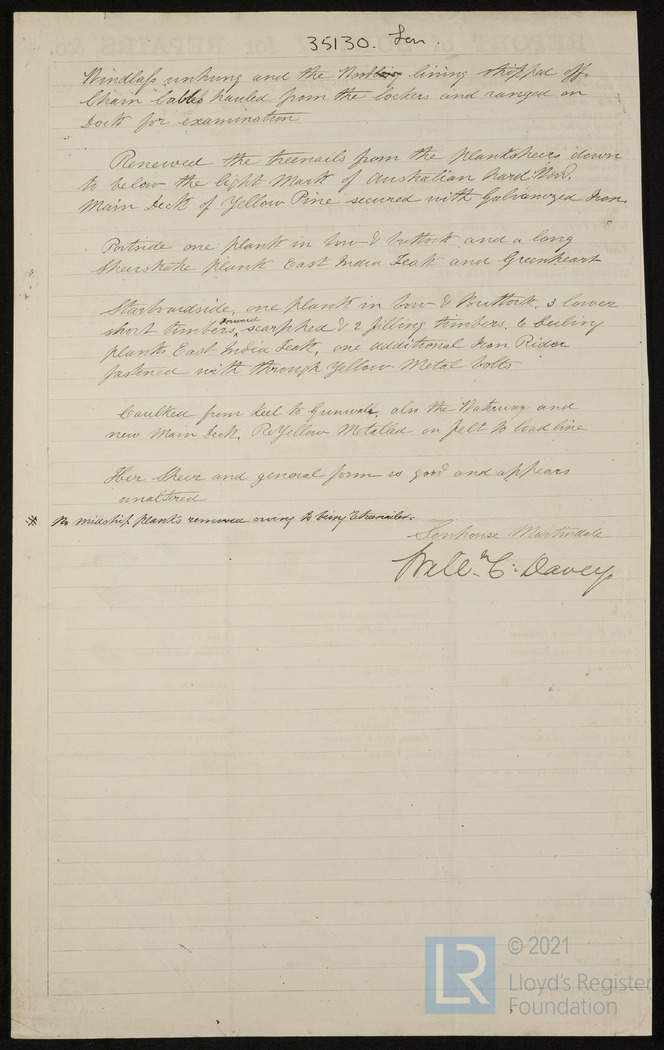 35130. Lon.
Windlass unhung and the lining stripped off.
Chain Cables hauled from the lockers and ranged on
Dock for examination
Renewed the treenails from the planksheirs down
to below the light Mark of Australian hard Wood.
Main Deck of Yellow Pine secured with Galvanized Iron.
Portside one plank in bow & buttock and a long
Sheerstrake plank East India Teak and Greenheart
Starboardside, one plank in bow & Buttock, 3 lower
short timbers forward, scarphed & 2 filling timbers. 6 Ceiling
planks East India Teak, one additional Iron Rider
fastened with through Yellow Metal bolts
Caulked from keel to Gunwale, also the Waterway and
new Main Deck. ReYellow Metalled on felt to load line
Her Sheer and general form is good and appears
unaltered
* No midship planks removed owing to being treenailed.
Senhouse Martindale
Willm. C. Davey
LR
© 2021
Lloyd's Register
Foundation